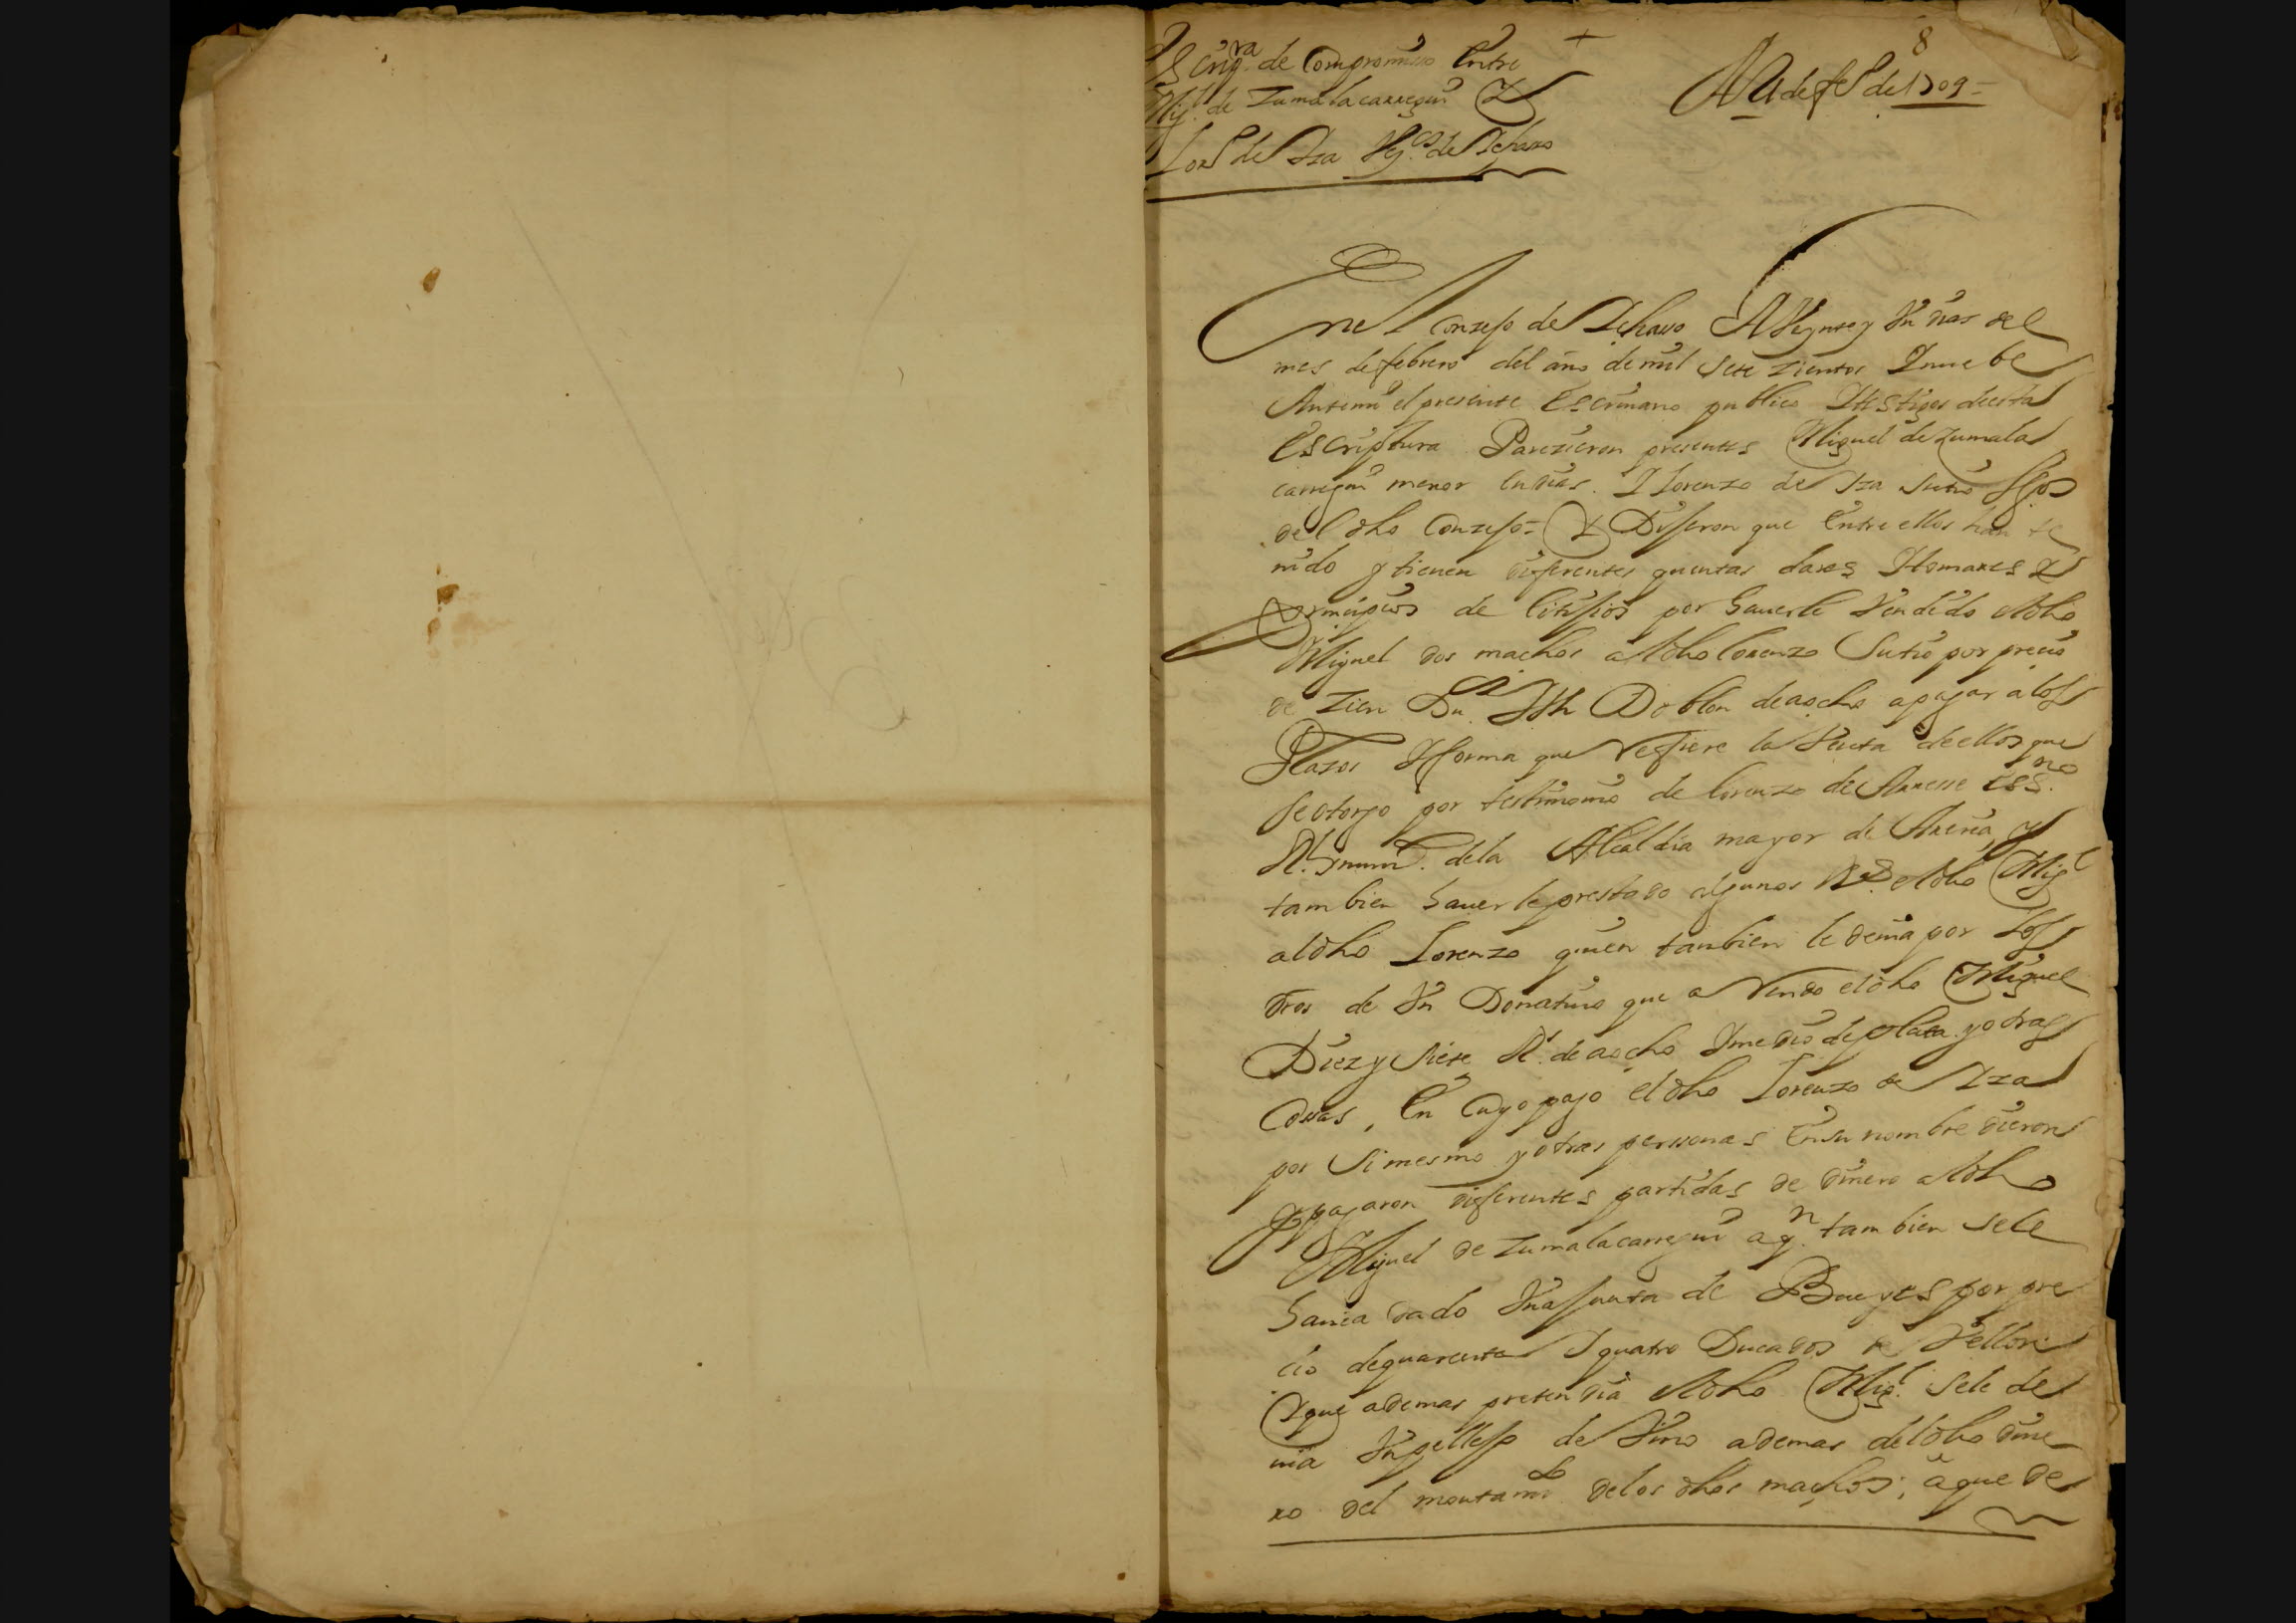 Scrip.ra de Compromisso Entre
Mig.l de Zumalacarregui Y
Lor.o de Iza Vez.os de Ichaso
8
A 21 de feb.o de 1709=
En el Conzejo de Ichasso A Veynte y Vn dias del
mes de febrero del año de mil sete zientos Y nuebe
Antemi el presente Escriuano publico Y testigos de esta
Escriptura Parezieron presentes Miguel de Zumala
carregui menor en dias. Y Lorenzo de Iza
del dho Conzejo= Y Dijeron que Entre ellos han te
nido y tienen diferentes quentas dares Y tomares Y
prinzipios de litijios por hauerle Vendido el dho
Miguel dos machos al dho Lorenzo por precio
de zien Du.s Y Vn Doblon de a ocho a pagar a los
Plazos Y forma que refiere la Venta de ellos que
se otorgo por testimonio de Lorenzo de ess.no
R.l Y num.l de la Alcaldia mayor de Areria, y
tambien hauerle prestado algunos R.s el dho Mig.l
al dho Lorenzo quien tambien le deuia por los
dros de Vn Donatiuo que a el dho Miguel
Diez y siete R.s de a ocho Y medio de plata y otras
cosas, En Cuyo pago el dho Lorenzo de Iza
por si mesmo y otras perssonas En su nombre dieron
y pagaron diferentes partidas de dinero al dho
Miguel de Zumalacarregui a q.n tambien se le
hauia dado Vna junta de Bueyes por pre
cio de quarenta Y quatro Ducados de Vellon
Y que ademas pretendia el dho Mig.l se le de
uia Vn pellejo de Vino ademas del dho dine
ro del montam.to de los dhos machos; a que de